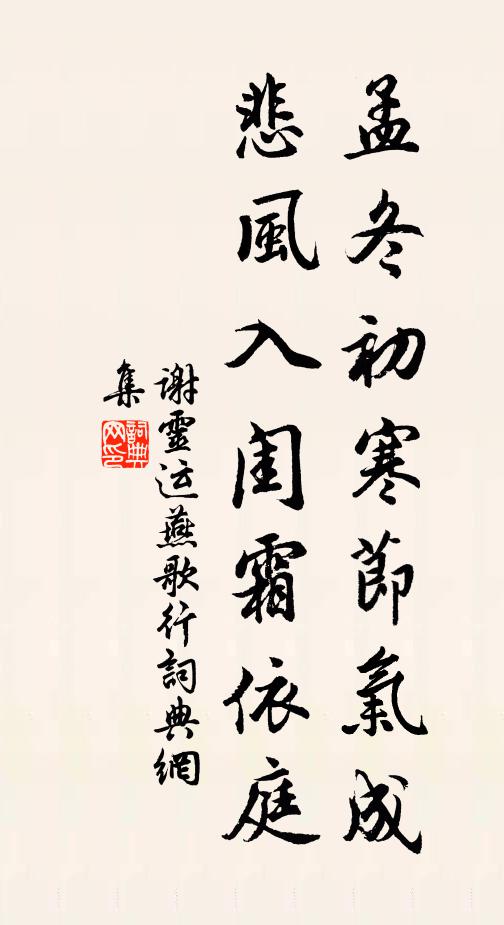 孟冬初寒節氣成
悲風入閨霜依庭
謝靈运燕歌行詞典網
集
詞典网印